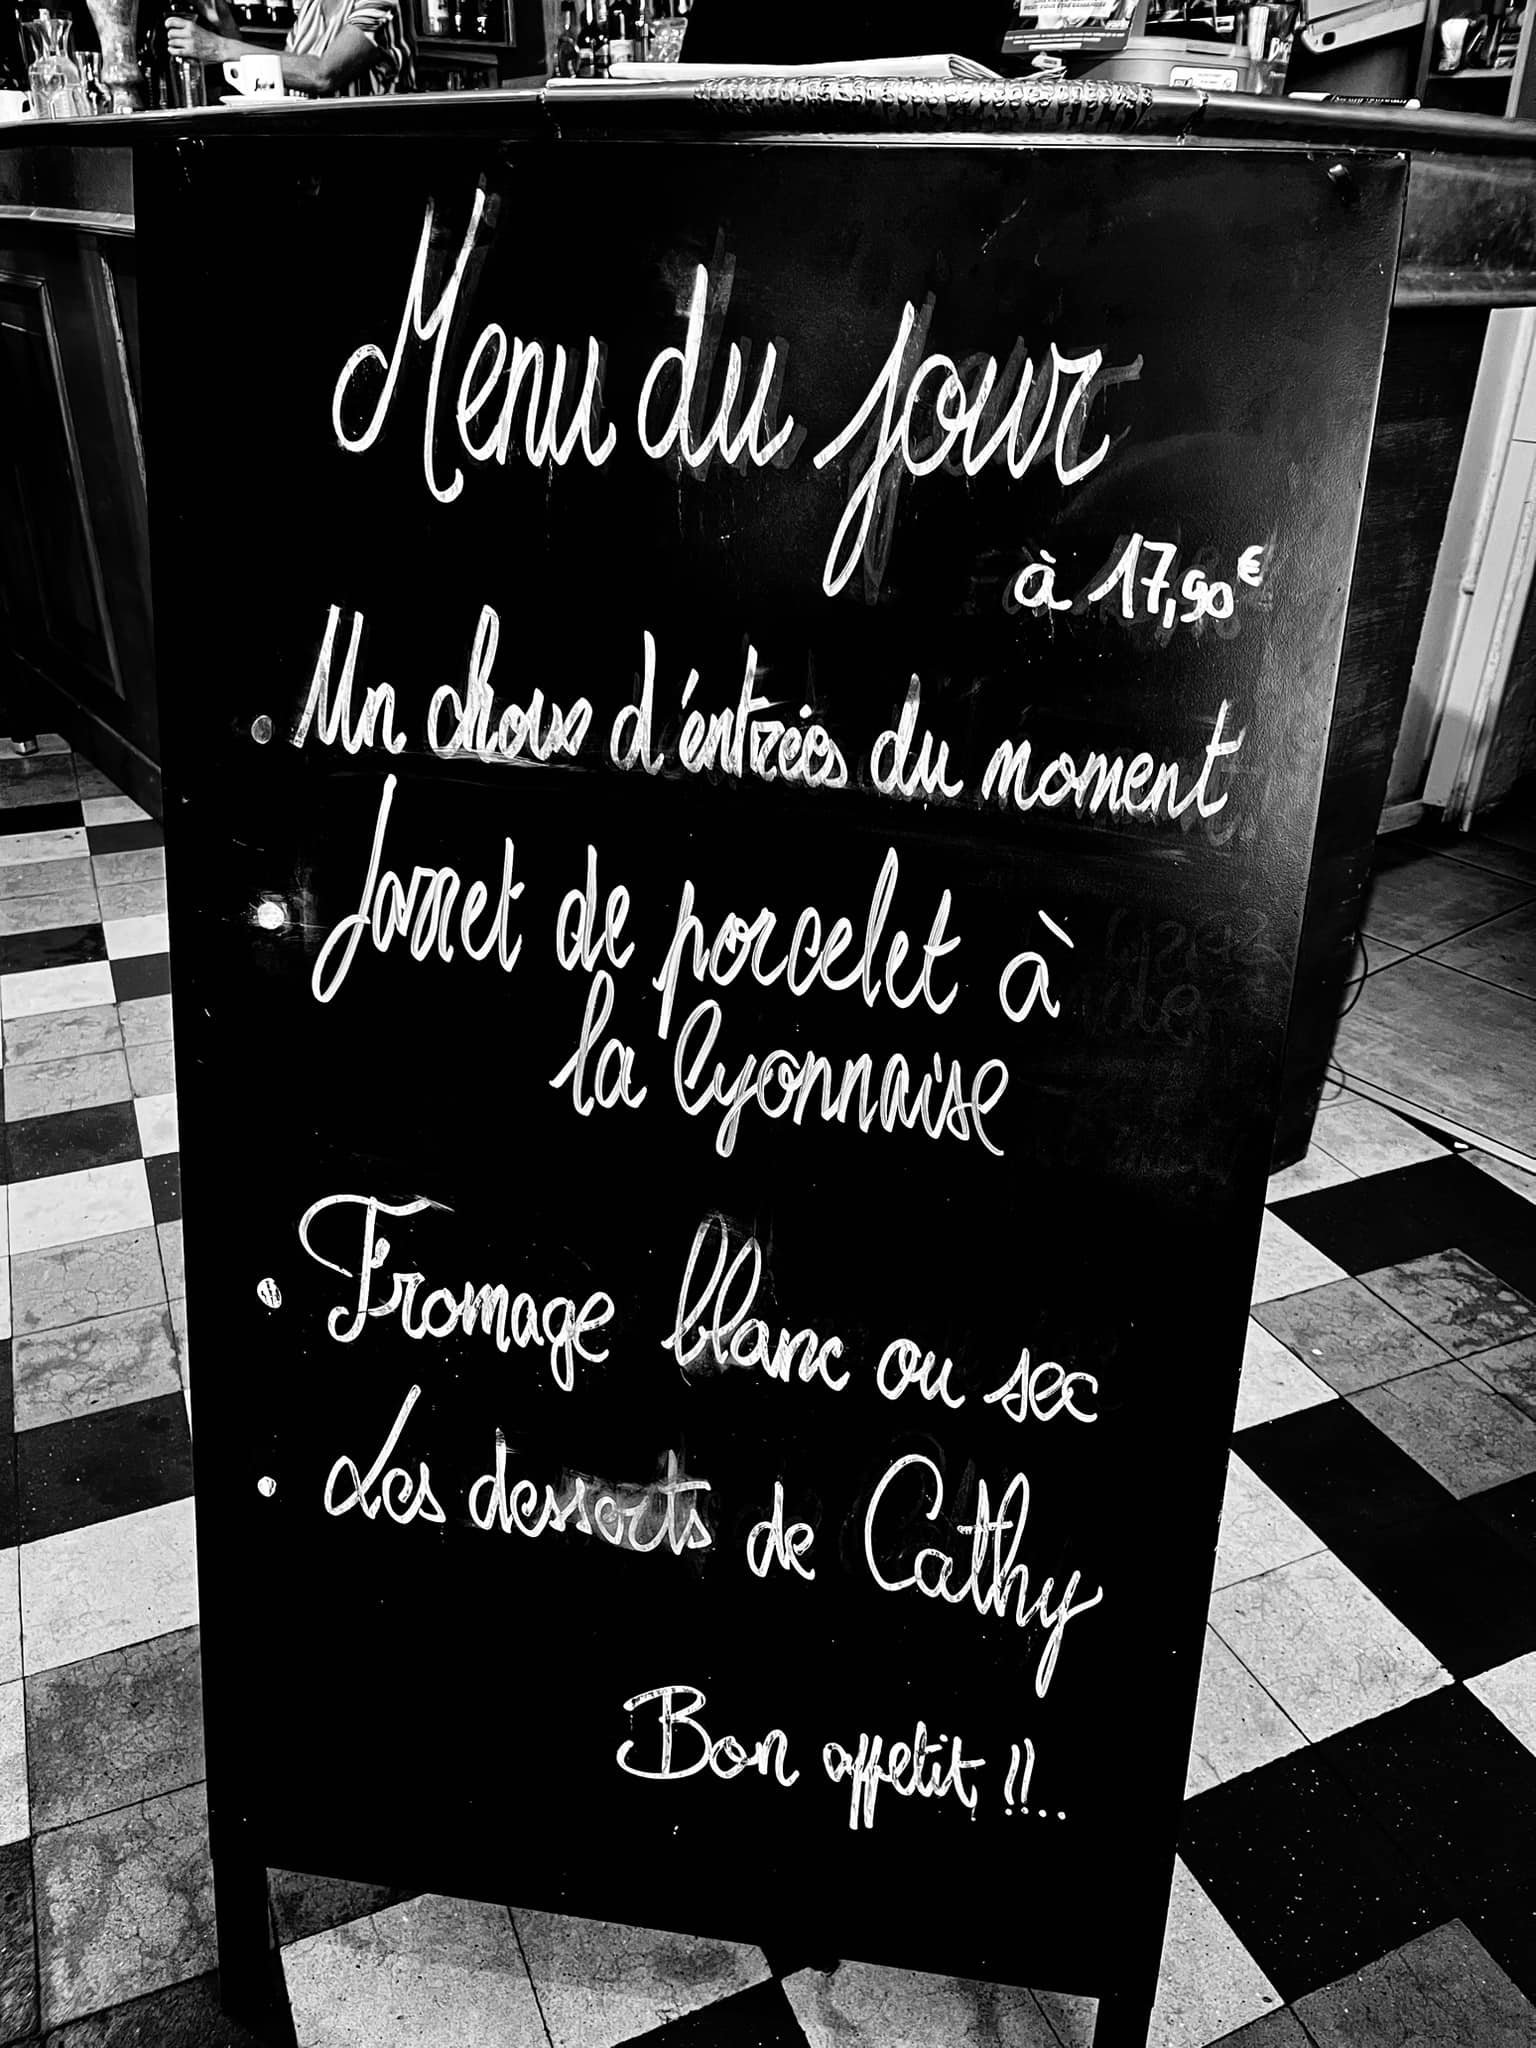 Menu du jour
à 17,90€
. Un choix d'entrées du moment
. Jarret de porcelet à
la lyonnaise
. Fromage blanc ou sec
. Les desserts de Cathy
Bon appetit !!..